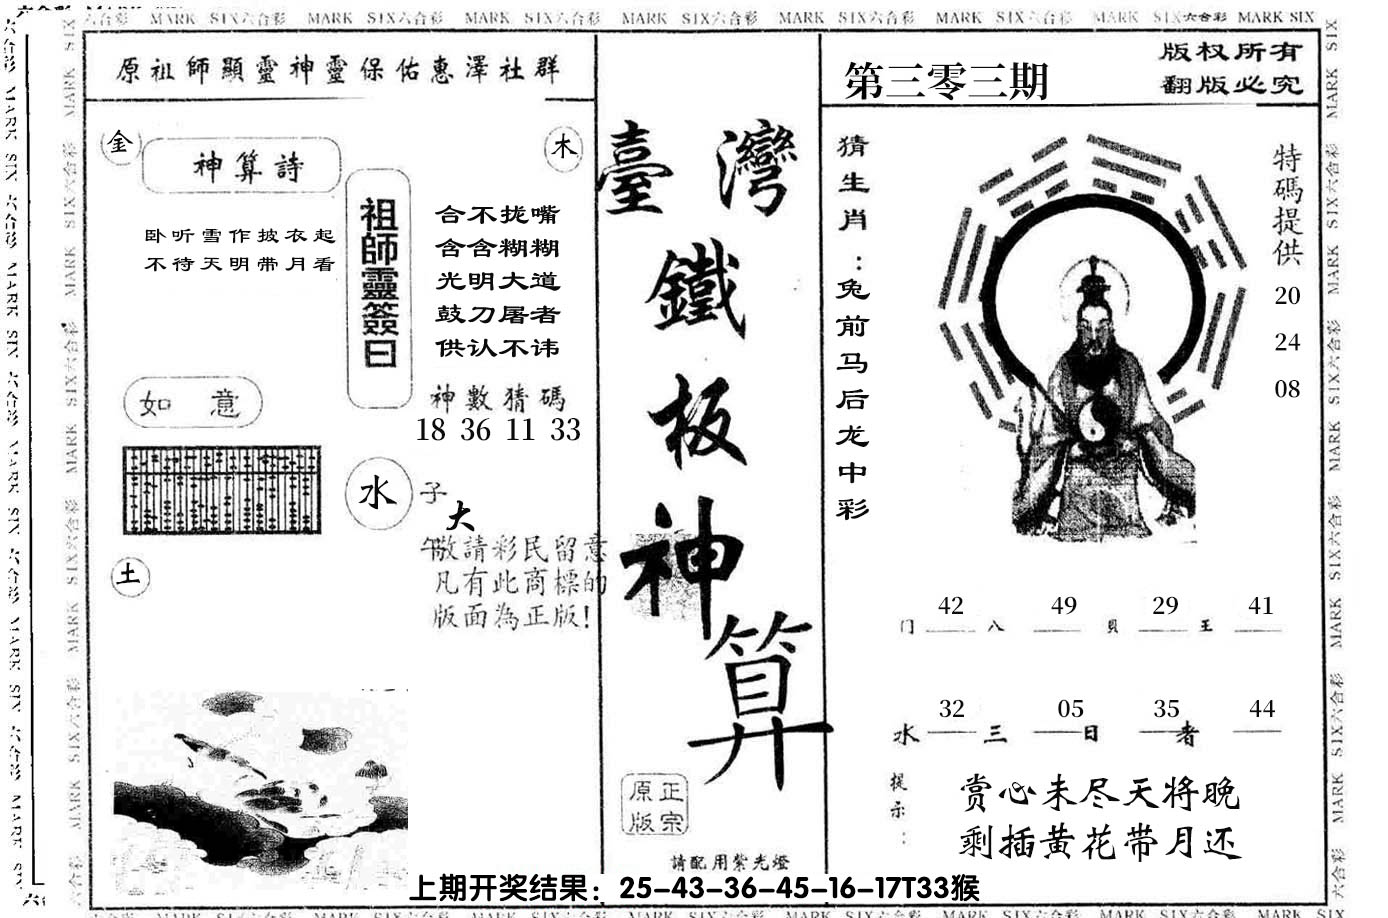 六合彩 MARK SIX六合彩 MARK SIX六合彩 MARK SIX六合彩 MARK SIX六合彩 MARK SIX六合彩 MARK SIX六合彩 MARK SIX六合彩 MARK SIX
原祖師顯靈神靈保佑惠澤社群
金
木
神算詩
卧听雪作披衣起
不待天明带月看
祖師靈簽曰
合不拢嘴
含含糊糊
光明大道
鼓刀屠者
供认不讳
神數猜碼
18 36 11 33
如意
水
子
大
午
敬請彩民留意
凡有此商標的
版面為正版!
土
臺灣
鐵
板
神
算
正宗
原版
請配用紫光燈
第三零三期
版权所有
翻版必究
猜生肖:兔前马后龙中彩
特碼提供
20
24
08
42 49 29 41
门 八 貝 王
32 05 35 44
水 三 日 者
提示:
赏心未尽天将晚
剩插黄花带月还
上期开奖结果：25-43-36-45-16-17T33猴